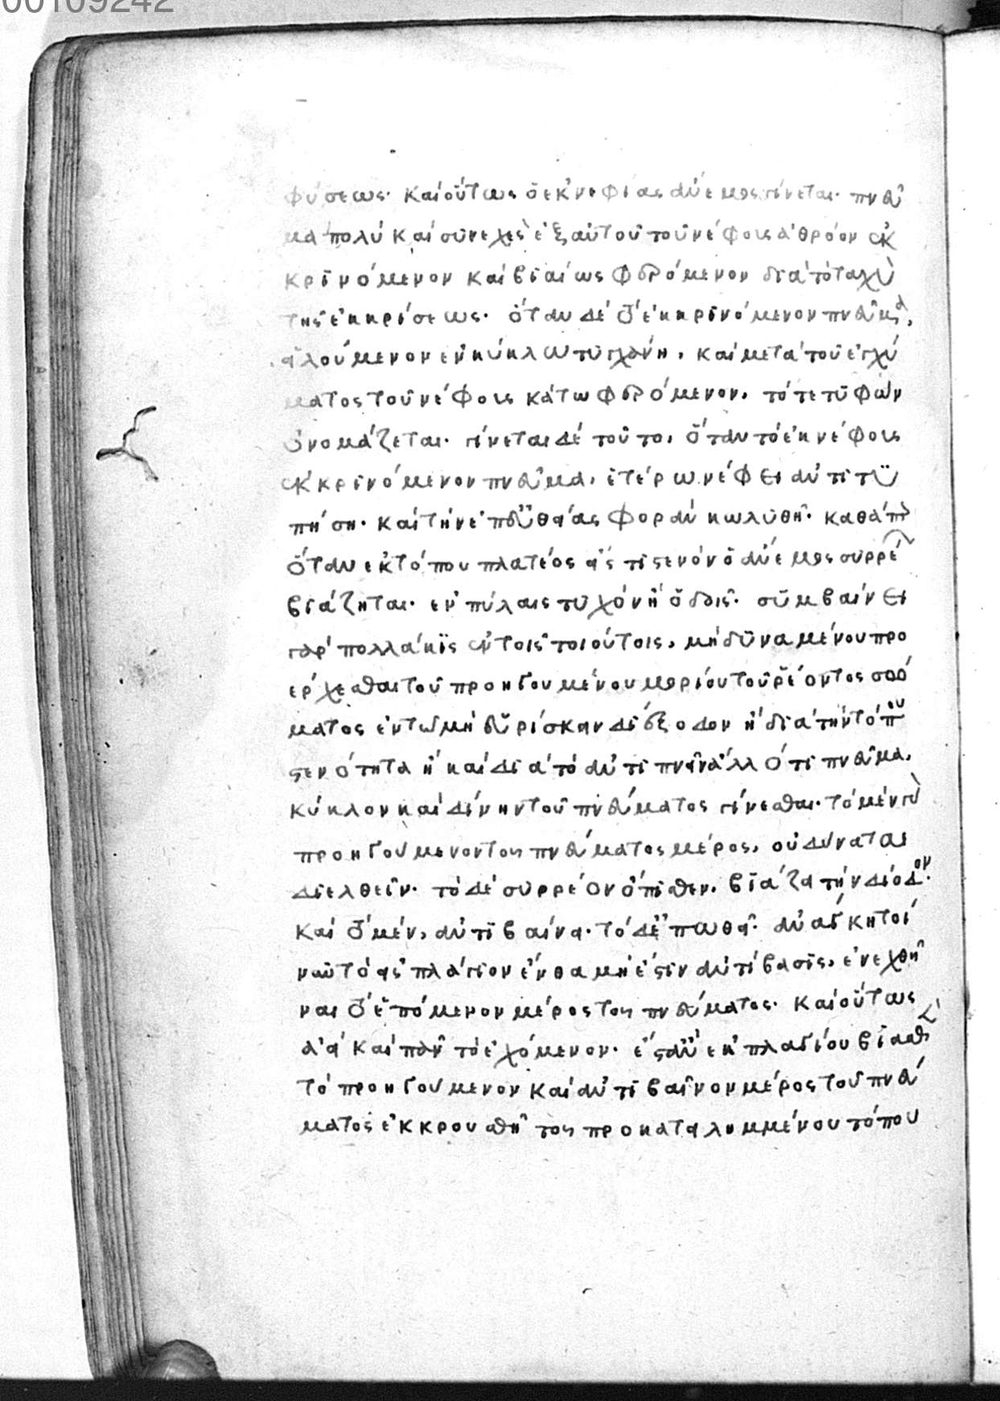 00109242
φύσεως· καὶ οὕτως ὁ ἐκνεφίας ἄνεμος γίνεται· πνεῦ
μα πολὺ καὶ συνεχὲς ἐξ αὐτοῦ τοῦ νέφους ἀθρόον ἐκ
κρινόμενον καὶ βιαίως φερόμενον διὰ τὸ ταχὺ
τῆς ἐκκρίσεως· ὅταν δὲ τὸ ἐκκρινόμενον πνεῦμα,
εἱλούμενον ἐν κύκλω τυγχάνη, καὶ μετὰ τοῦ
ματος τοῦ νέφους κάτω φερόμενον, τότε τυφὼν
ὀνομάζεται· γίνεται δὲ τοῦτο, ὅταν τὸ ἐκ νέφους
ἐκκρινόμενον πνεῦμα, ἑτέρω νέφει ἀντιτυ
πήση· καὶ τὴν ἐπ' εὐθείας φορὰν κωλυθῆ· καθάπερ
ὅταν ἐκ τόπου πλατέος εἰς στενὸν ὁ ἄνεμος συρρέ
βιάζηται· ἐν πύλαις τυχὸν ἢ ὁδοῖς· συμβαίνει
γὰρ πολλάκις ἐν τοῖς τοιούτοις, μὴ δυναμένου προ
έρχεσθαι τοῦ προηγουμένου μορίου τοῦ ῥέοντος σώ
ματος ἐν τῶ μὴ εὑρίσκειν διέξοδον ἢ διὰ τὴν τόπου
στενότητα ἢ καὶ διὰ τὸ ἀντιπνεῖν ἄλλο τι πνεῦμα,
κύκλον καὶ δίνην τοῦ πνεύματος γίνεσθαι· τὸ μὲν γὰρ
προηγούμενον τοῦ πνεύματος μέρος, οὐ δύναται
διελθεῖν· τὸ δὲ συρρέον ὄπισθεν, βιάζει τὴν δίοδον·
καὶ τὸ μὲν, ἀντιβαίνει· τὸ δὲ ἐπωθεῖ· ἀναγκη τοί
νυν τὸ εἰς πλάγιον ἔνθα μή ἐστιν ἀντίβασις, ἐνεχθῆ
ναι τὸ ἑπόμενον μέρος τοῦ πνεύματος· καὶ οὕτως
ἀεὶ καὶ πᾶν τὸ ἐχόμενον· ἔστ' ἂν ἐκ πλαγίου βιασθὲν
τὸ προηγούμενον καὶ ἀντιβαῖνον μέρος τοῦ πνεύ
ματος ἐκκρουσθῆ τοῦ προκατειλημμένου τόπου